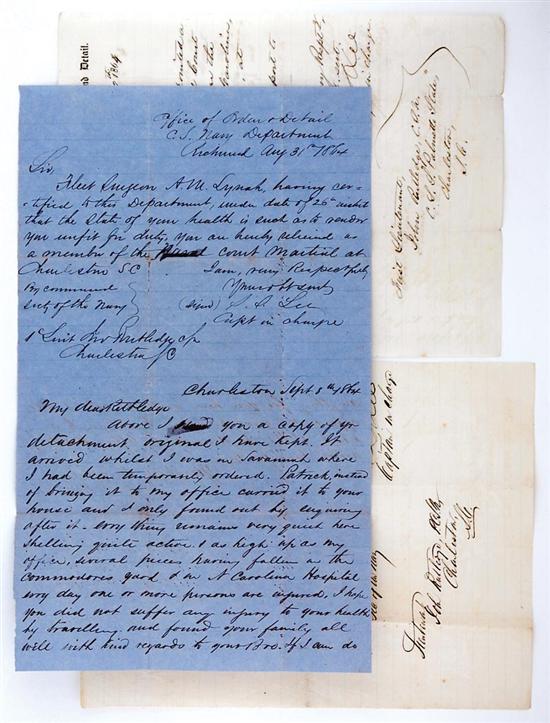 Office of Orders & Detail
C.S. Navy Department
Richmond Aug 31st 1864
Sir,
Fleet Surgeon A.M. Lynah, having cer-
tified to this Department, under date of 26th
that the State of your health is such as to render
you unfit for duty, you are hereby relieved as
a member of the court Martial at
Charleston S.C I am, very Respectfully
By command Your obt sevt
Secty of the Navy (Signed) S. S. Lee
Capt in charge
1st Lieut Jno Rutledge
Charleston SC
Charleston Sept 5th 1864
My dear Rutledge
Above I you a copy of yr
detachment original I have kept. It
arrived whilst I was in Savannah where
I had been temporarily ordered. Patrick, instead
of bringing it to my office carried it to your
house and I only found out by enquiring
after it. Every thing remains very quiet here
Shelling quite active & as high up as my
office, several pieces having fallen in the
commodores yard & in N Carolina Hospital
every day one or more persons are injured. I hope
you did not suffer any injury to your health
by travelling and found your family all
well with kind regards to your Bro. & I am do
and Detail.
1864
Lee
in charge
First Lieutenant
John Rutledge, C.S.N.
C.S.S. Palmetto State
Charleston
S.C.
Captain in charge
Charleston
S.C.